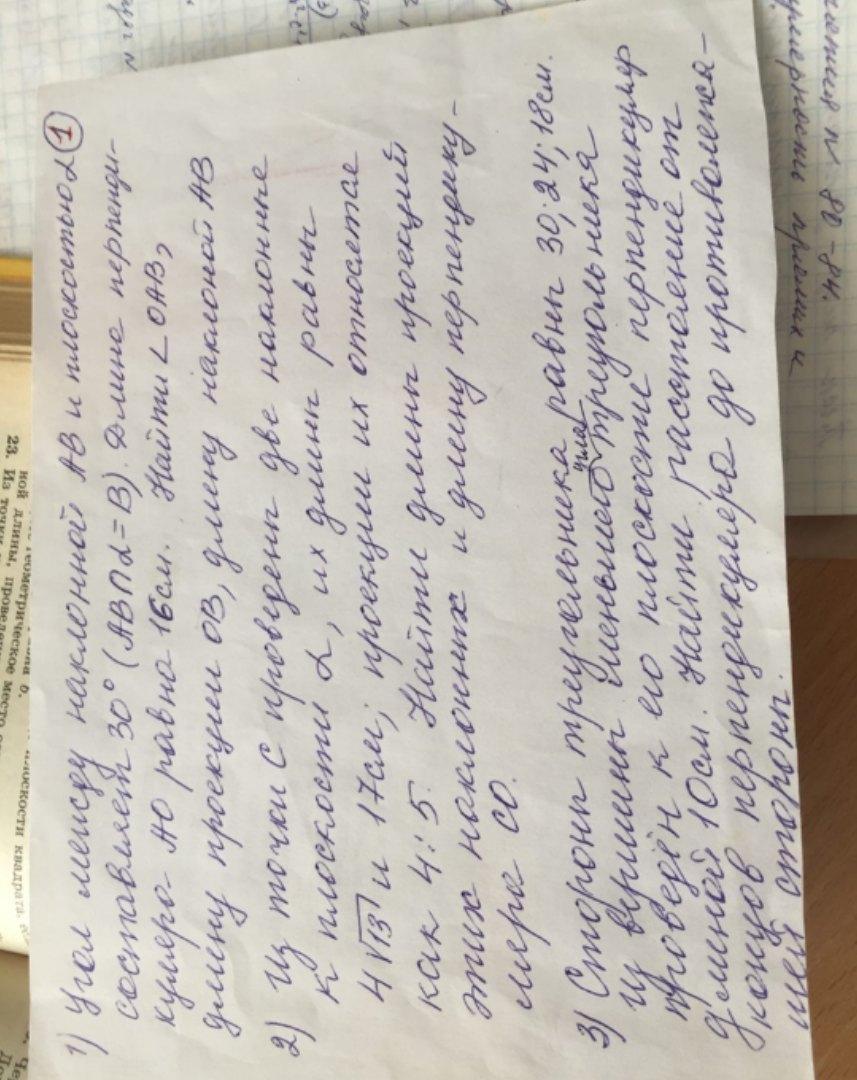 1
1) Угол между наклонной AB и плоскостью α
составляет 30° (AB∩α=B). Длина перпенди-
куляра AO равна 16см. Найти ∠OAB,
длину проекции OB, длину наклоной AB
2) Из точки C проведены две наклонные
к плоскости α, их длины равны
4√13 и 17см, проекции их относятся
как 4:5. Найти длины проекций
этих наклонных и длину перпендику-
ляра CO.
3) Стороны треугольника равны 30; 24; 18см.
Из вершины меньшего угла треугольника
проведён к его плоскости перпендикуляр
длиной 10см. Найти расстояние от
концов перпендикуляра до противолежа-
щей стороны.
N 80-84.
прямых и
плоскости квадрата.
ной длины,
23. Из точки
геометрическое место